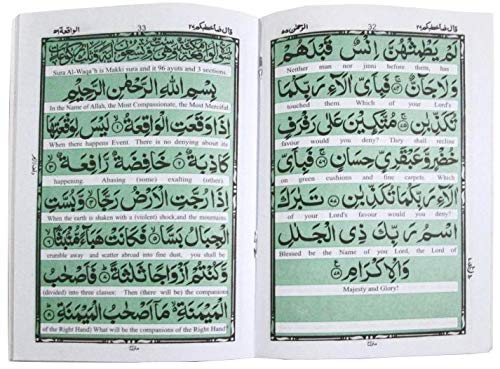 الرحمٰن ٥٥ 32 قال فما خطبكم ٢٧
لَمْ يَطْمِثْهُنَّ اِنْسٌ قَبْلَهُمْ
Neither man nor jinni before them, has
وَلَا جَآنٌّ فَبِاَىِّ اٰلَآءِ رَبِّكُمَا
touched them. Which of your Lord's
تُكَذِّبٰنِ مُتَّكِـِٕيْنَ عَلٰى رَفْرَفٍ
favour would you deny? They shall recline
خُضْرٍ وَّعَبْقَرِىٍّ حِسَانٍ فَبِاَىِّ
on green cushions and fine carpets. Which
اٰلَآءِ رَبِّكُمَا تُكَذِّبٰنِ تَبٰرَكَ
of your Lord's favour would you deny?
اسْمُ رَبِّكَ ذِى الْجَلٰلِ
Blessed be the Name of you Lord, the Lord of
وَالْاِكْرَامِ
Majesty and Glory!
الواقعة ٥٦ 33 قال فما خطبكم ٢٧
Sura Al-Waqa'h is Makki sura and it 96 ayuts and 3 sections.
بِسْمِ اللّٰهِ الرَّحْمٰنِ الرَّحِيْمِ
In the Name of Allah, the Most Compassionate, the Most Merciful
اِذَا وَقَعَتِ الْوَاقِعَةُ لَيْسَ لِوَقْعَتِهَا
When there happens Event. There is no denying about its
كَاذِبَةٌ خَافِضَةٌ رَّافِعَةٌ
happening. Abasing (some) exalting (other).
اِذَا رُجَّتِ الْاَرْضُ رَجًّا وَّبُسَّتِ
When the earth is shaken with a (violent) shock,and the mountains
الْجِبَالُ بَسًّا فَكَانَتْ هَبَآءً مُّنْۢبَثًّا
crumble away and scatter abroad into fine dust, you shall be
وَّكُنْتُمْ اَزْوَاجًا ثَلٰثَةً فَاَصْحٰبُ
(divided) into three classes: Then (there will be) the companions
الْمَيْمَنَةِ مَآ اَصْحٰبُ الْمَيْمَنَةِ
of the Right Hand) What will be the companions of the Right Hand?